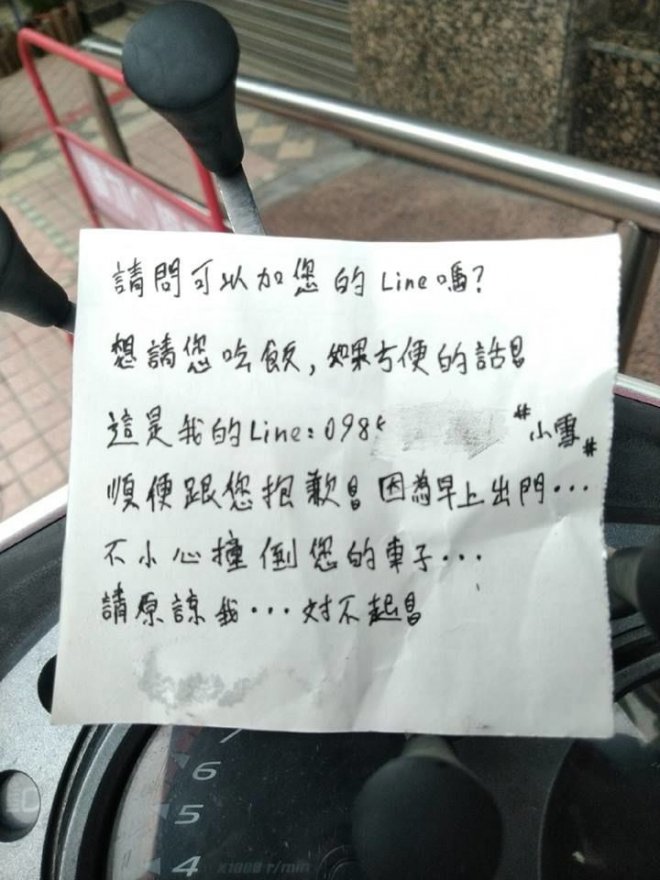 請問可以加您的Line嗎?
想請您吃飯,如果方便的話
這是我的Line:098 #小雪#
順便跟您抱歉 因為早上出門...
不小心撞倒您的車子...
請原諒我...対不起
7
6
5
4
x1000 r/min